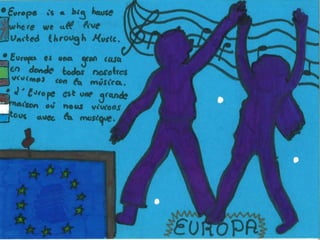 Europe is a big house
where we all live
United through Music.
Europa es una gran casa
en donde todos nosotros
vivimos con la música.
L'Europe est une grande
maison où nous vivons
tous avec la musique.
EUROPA